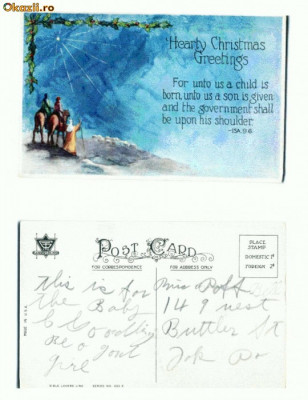 Okazii.ro
Hearty Christmas
Greetings
For unto us a child is
born, unto us a son is given
and the government shall
be upon his shoulder
-ISA. 9:6
POST CARD
FOR CORRESPONDENCE
FOR ADDRESS ONLY
PLACE
STAMP
DOMESTIC 1¢
FOREIGN 2¢
This is for
the Baby
Miss
149 west
Buttler St
MADE IN U.S.A.
BIBLE LOVERS LINE